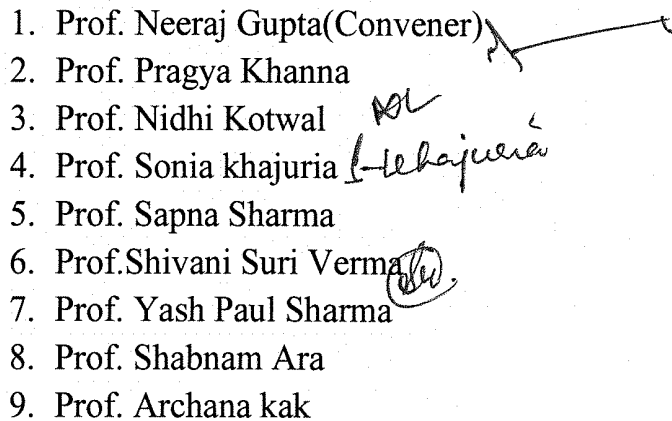 1. Prof. Neeraj Gupta(Convener)
2. Prof. Pragya Khanna
3. Prof. Nidhi Kotwal
4. Prof. Sonia khajuria
5. Prof. Sapna Sharma
6. Prof.Shivani Suri Verma
7. Prof. Yash Paul Sharma
8. Prof. Shabnam Ara
9. Prof. Archana kak